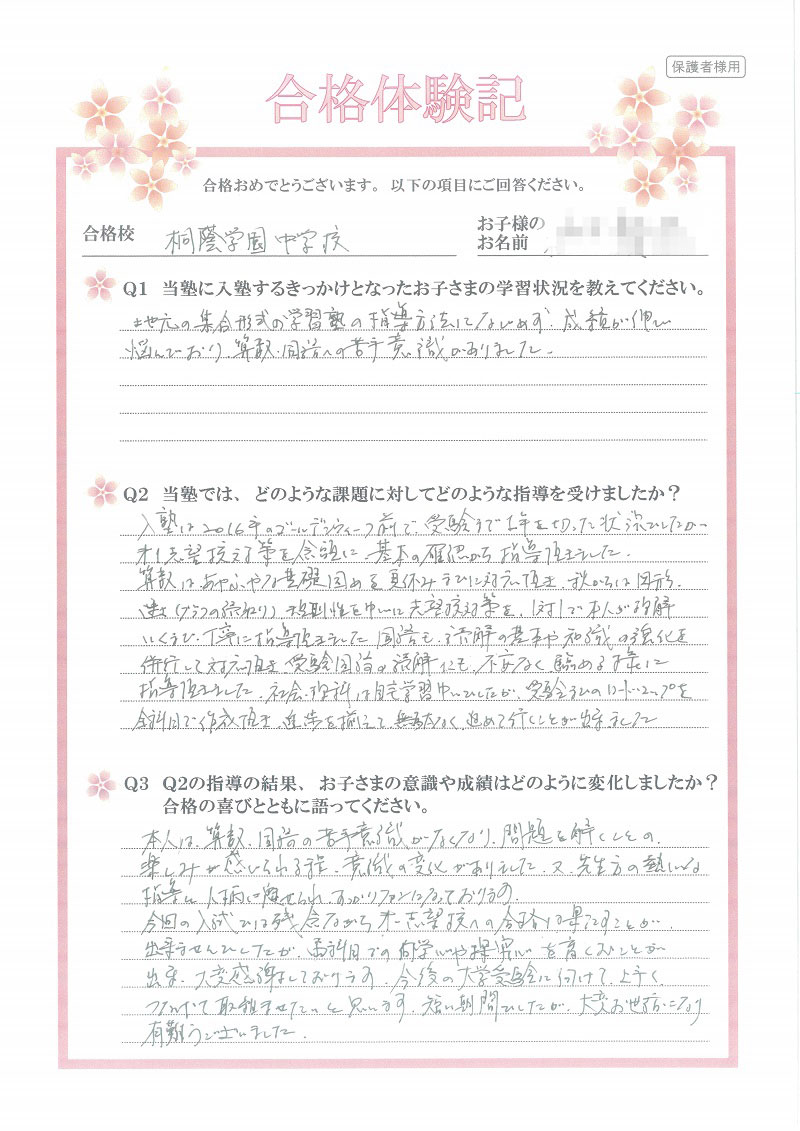 保護者様用
合格体験記
合格おめでとうございます。以下の項目にご回答ください。
合格校 桐蔭学園中学校
お子様の
お名前
Q1 当塾に入塾するきっかけとなったお子さまの学習状況を教えてください。
地元の集合形式の学習塾の指導方法になじめず、成績が伸び
悩んでおり、算数・国語への苦手意識がありました。
Q2 当塾では、どのような課題に対してどのような指導を受けましたか？
入塾は2016年のゴールデンウィーク前で、受験まで1年を切った状況でしたが
オ1志望校対策を念頭に、基本の確認から指導頂きました。
算数はあやふやな基礎固めを夏休みまでに対応頂き、秋からは図形、
速さ(グラフの読取り)、規則性を中心に志望校対策を、1対1で本人が理解
いくまで、丁寧に指導頂きました。国語も、読解の基本や知識の強化を
併行して対応頂き、受験国語の読解にも、不安なく臨める様に
指導頂きました。社会・理科は自宅学習中心でしたが、受験までのロードマップを
全科目で作成頂き、進歩を揃えて、無駄なく、進めて行くことが出来ました
Q3 Q2の指導の結果、お子さまの意識や成績はどのように変化しましたか？
合格の喜びとともに語ってください。
本人は、算数、国語の苦手意識がなくなり、問題を解くことの、
楽しみが感じられる程、意識の変化がありました。又、先生方の熱心な
指導と人柄に魅せられ、すっかりファンになっております。
今回の入試では残念ながらオ一志望校への合格は果たすことが、
出来ませんでしたが、両科目での向学心や探究心を育くむことが
出来、大変感謝しております。今後の大学受験に向けて、上手く、
つなげて取組ませたいと思います。短い期間でしたが、大変お世話になり
有難うございました。